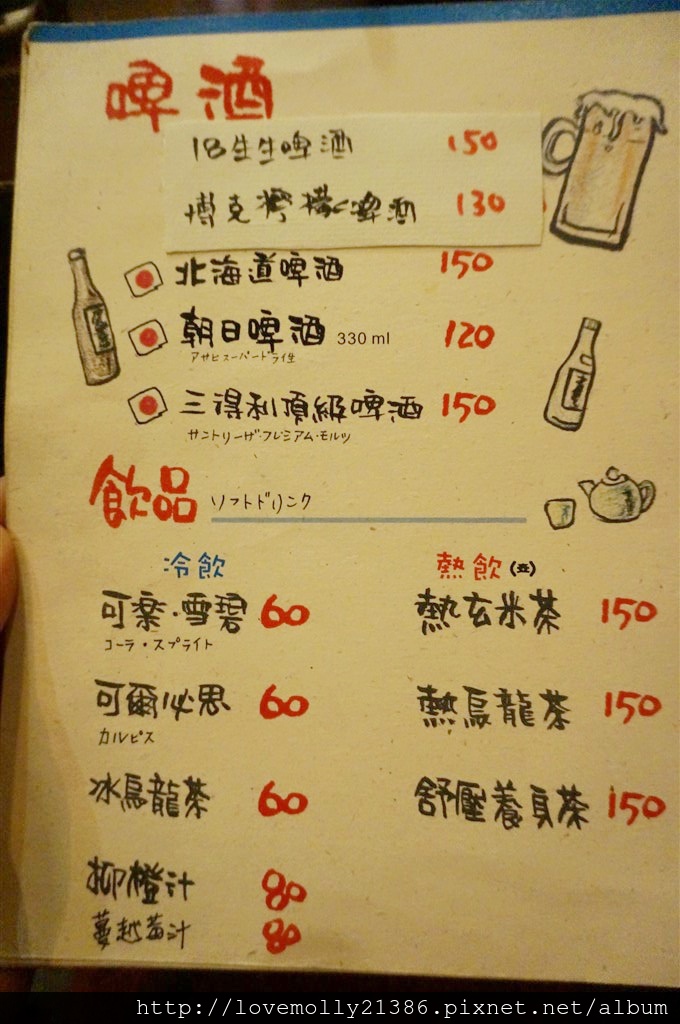 啤酒
18生生啤酒 150
博克檸檬啤酒 130
北海道啤酒 150
朝日啤酒 330 ml 120
アサヒスーパードライ生
三得利頂級啤酒 150
サントリーザ・プレミアム・モルツ
飲品 ソフトドリンク
冷飲
熱飲(壺)
可楽·雪碧 60
コーラ・スプライト
熱玄米茶 150
可爾必思 60
カルピス
熱烏龍茶 150
冰烏龍茶 60
舒壓養身茶 150
柳橙汁 80
蔓越莓汁 80
http://lovemolly21386.pixnet.net/album